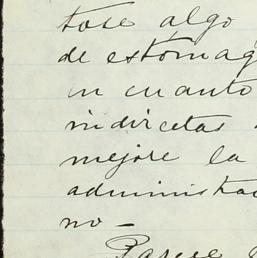 tose algo
de estómag
en cuanto
indirectas
mejore la
administrac
no —
Parece